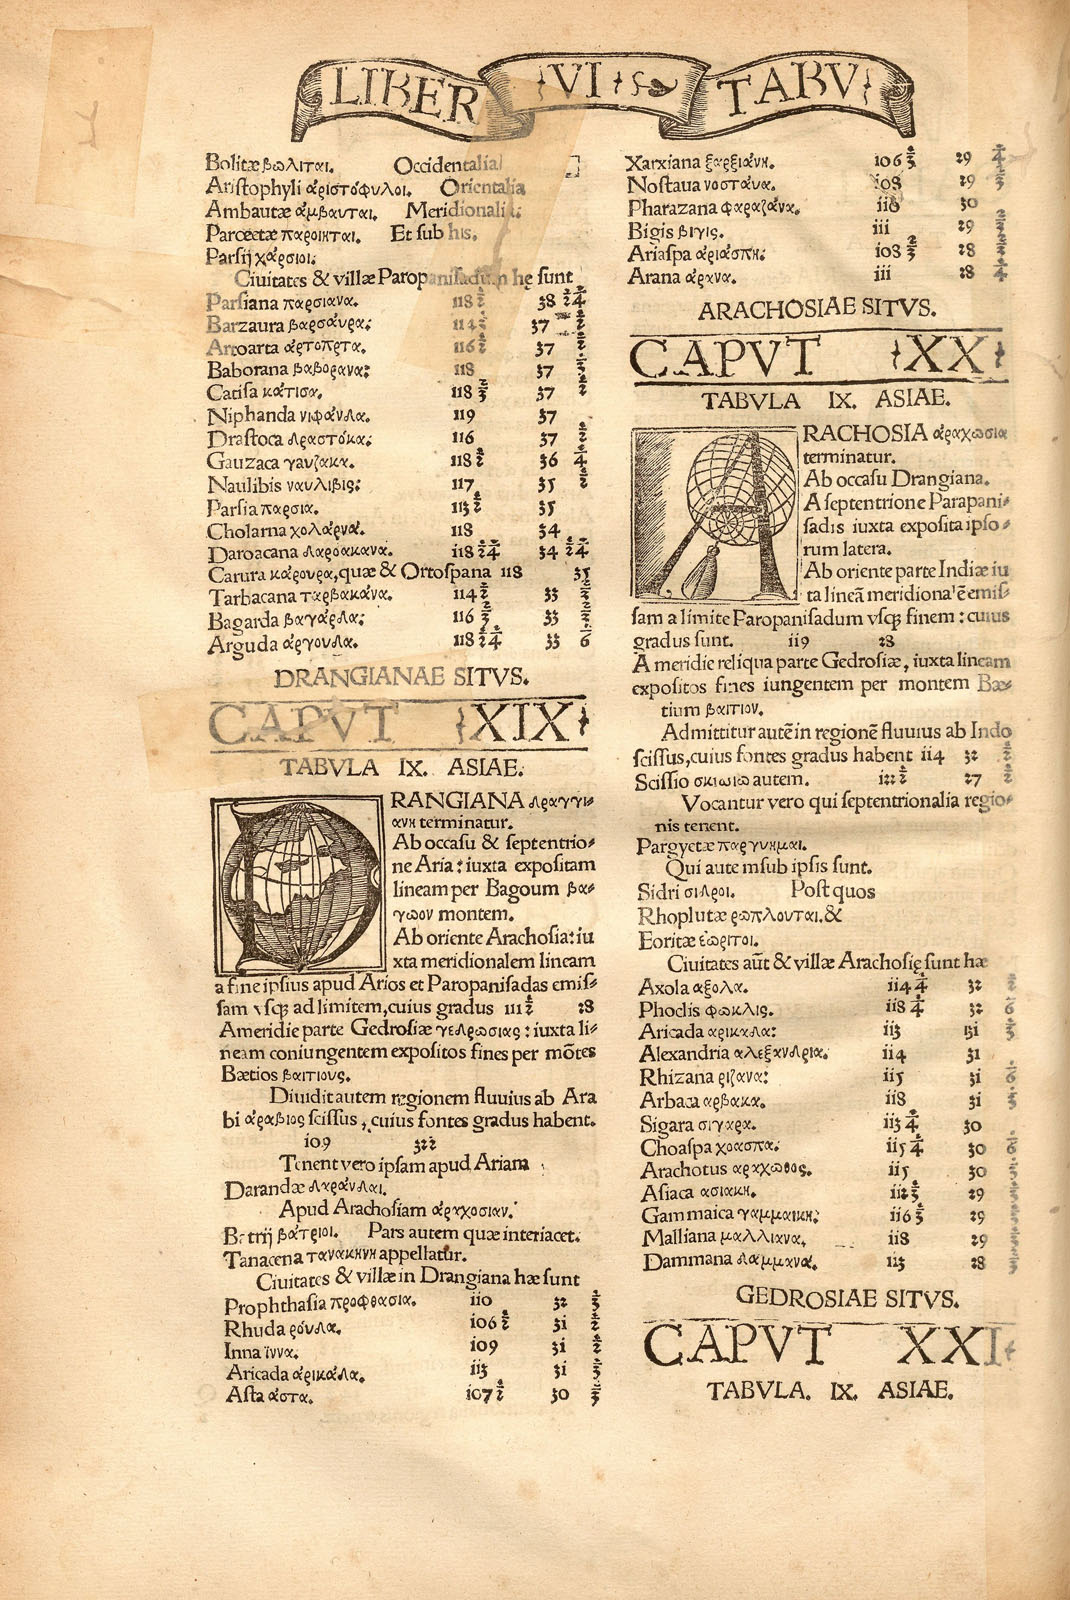 LIBER VI TABV
Bolitæ βωλιται. Occidentalia
Aristophyli ἀριστόφυλοι. Orientalia
Ambautæ ἀμβαυται. Meridionalia:
Parœetæ παροιηται. Et sub his.
Parsij
Ciuitates & villæ Paropanisadum hę sunt
Parsiana παρσιανα. 118 1/2 38 1/2 1/4
Barzaura βαρσάυρα: 37
Artoarta ἀρτοπρτα. 116 1/2 37 1/2
Baborana βαβορανα: 118 37
Catisa κάτισα. 118 2/3 37 1/2
Niphanda νιφάνδα 119 37
Drastoca δραστόκα: 116 37 1/2
Gauzaca γαυζακα. 118 1/2 36 1/4
Naulibis ναυλιβις: 117 35 1/2
Parsia παρσια. 113 1/2 35
Cholarna χολάρνα. 118 34
Daroacana δαροακανα. 118 1/2 1/4 34 1/2 1/4
Carura κάρουρα, quæ & Ortospana 118 35
Tarbacana ταρβακάνα. 114 1/2 33
Bagarda βαγάρδα: 116 33
Arguda ἀργουδα. 118 1/2 1/4 33 1/6
DRANGIANAE SITVS.
CAPVT XIX
TABVLA IX. ASIAE.
DRANGIANA δραγγι-
ανη terminatur.
Ab occasu & septentrio-
ne Aria: iuxta expositam
lineam per Bagoum βα-
γωον montem.
Ab oriente Arachosia: iu
xta meridionalem lineam
a fine ipsius apud Arios et Paropanisadas emis-
sam vsqꝫ ad limitem, cuius gradus 111 1/2 28
A meridie parte Gedrosiæ γεδρωσιας: iuxta li-
neam coniungentem expositos fines per mōtes
Bætios βαιτιους.
Diuidit autem regionem fluuius ab Ara
bi ἀραβιος scissus, cuius fontes gradus habent.
109 32 1/2
Tenent vero ipsam apud Ariam
Darandæ δαράνδαι.
Apud Arachosiam ἀραχοσιαν.
Batrij βάτριοι. Pars autem quæ interiacet.
Tanacena τανακηνη appellatur.
Ciuitates & villæ in Drangiana hæ sunt
Prophthasia προφθασια. 110 32 1/3
Rhuda ρόυδα. 106 1/2 31 1/2
Inna ϊννα. 109 31 1/2
Aricada ἀρικάδα. 113 31 1/3
Asta ἀστα. 107 1/2 30 2/3
Xarxiana ξαρξιάνη. 106 1/3 29 1/4
Nostaua νοστάυα. 108 29
Pharazana φαραζάνα. 110 30
Bigis βιγις. 111 29
Ariaspa ἀριάσπη: 108 2/3 28
Arana ἀρανα. 111 28 1/4
ARACHOSIAE SITVS.
CAPVT XX
TABVLA IX. ASIAE.
ARACHOSIA ἀραχωσια
terminatur.
Ab occasu Drangiana.
A septentrione Parapani-
sadis iuxta exposita ipso-
rum latera.
Ab oriente parte Indiæ iu
ta lineā meridionalē emis-
sam a limite Paropanisadum vsqꝫ finem: cuius
gradus sunt. 119 28
A meridie reliqua parte Gedrosiæ, iuxta lineam
expositos fines iungentem per montem Bæ-
tium βαιτιον.
Admittitur autē in regionē fluuius ab Indo
scissus, cuius fontes gradus habent 114 32 1/2
Scissio σκιωιω autem. 27
Vocantur vero qui septentrionalia regio-
nis tenent.
Pargyetæ παργυημαι.
Qui aute msub ipsis sunt.
Sidri σιδροι. Post quos
Rhoplutæ ρωπλουται. &
Eoritæ ἐωριτοι.
Ciuitates aūt & villæ Arachosię sunt hæ
Axola αξολα. 114 1/4 32
Phoclis φωκλις. 118 1/4 32 1/6
Aricada αρικαδα: 113 31
Alexandria αλεξανδρια. 114 31
Rhizana ριζανα: 115 31 1/6
Arbaca αρβακα. 118 31
Sigara σιγαρα. 113 1/4 30
Choaspa χοασπα: 115 1/4 30 1/6
Arachotus αραχωθος. 115 30
Asiaca ασιακη. 112 1/3 29
Gammaica γαμμαικη: 116 1/3 29
Malliana μαλλιανα. 118 29
Dammana δαμμανα. 113 28
GEDROSIAE SITVS.
CAPVT XXI
TABVLA. IX. ASIAE.